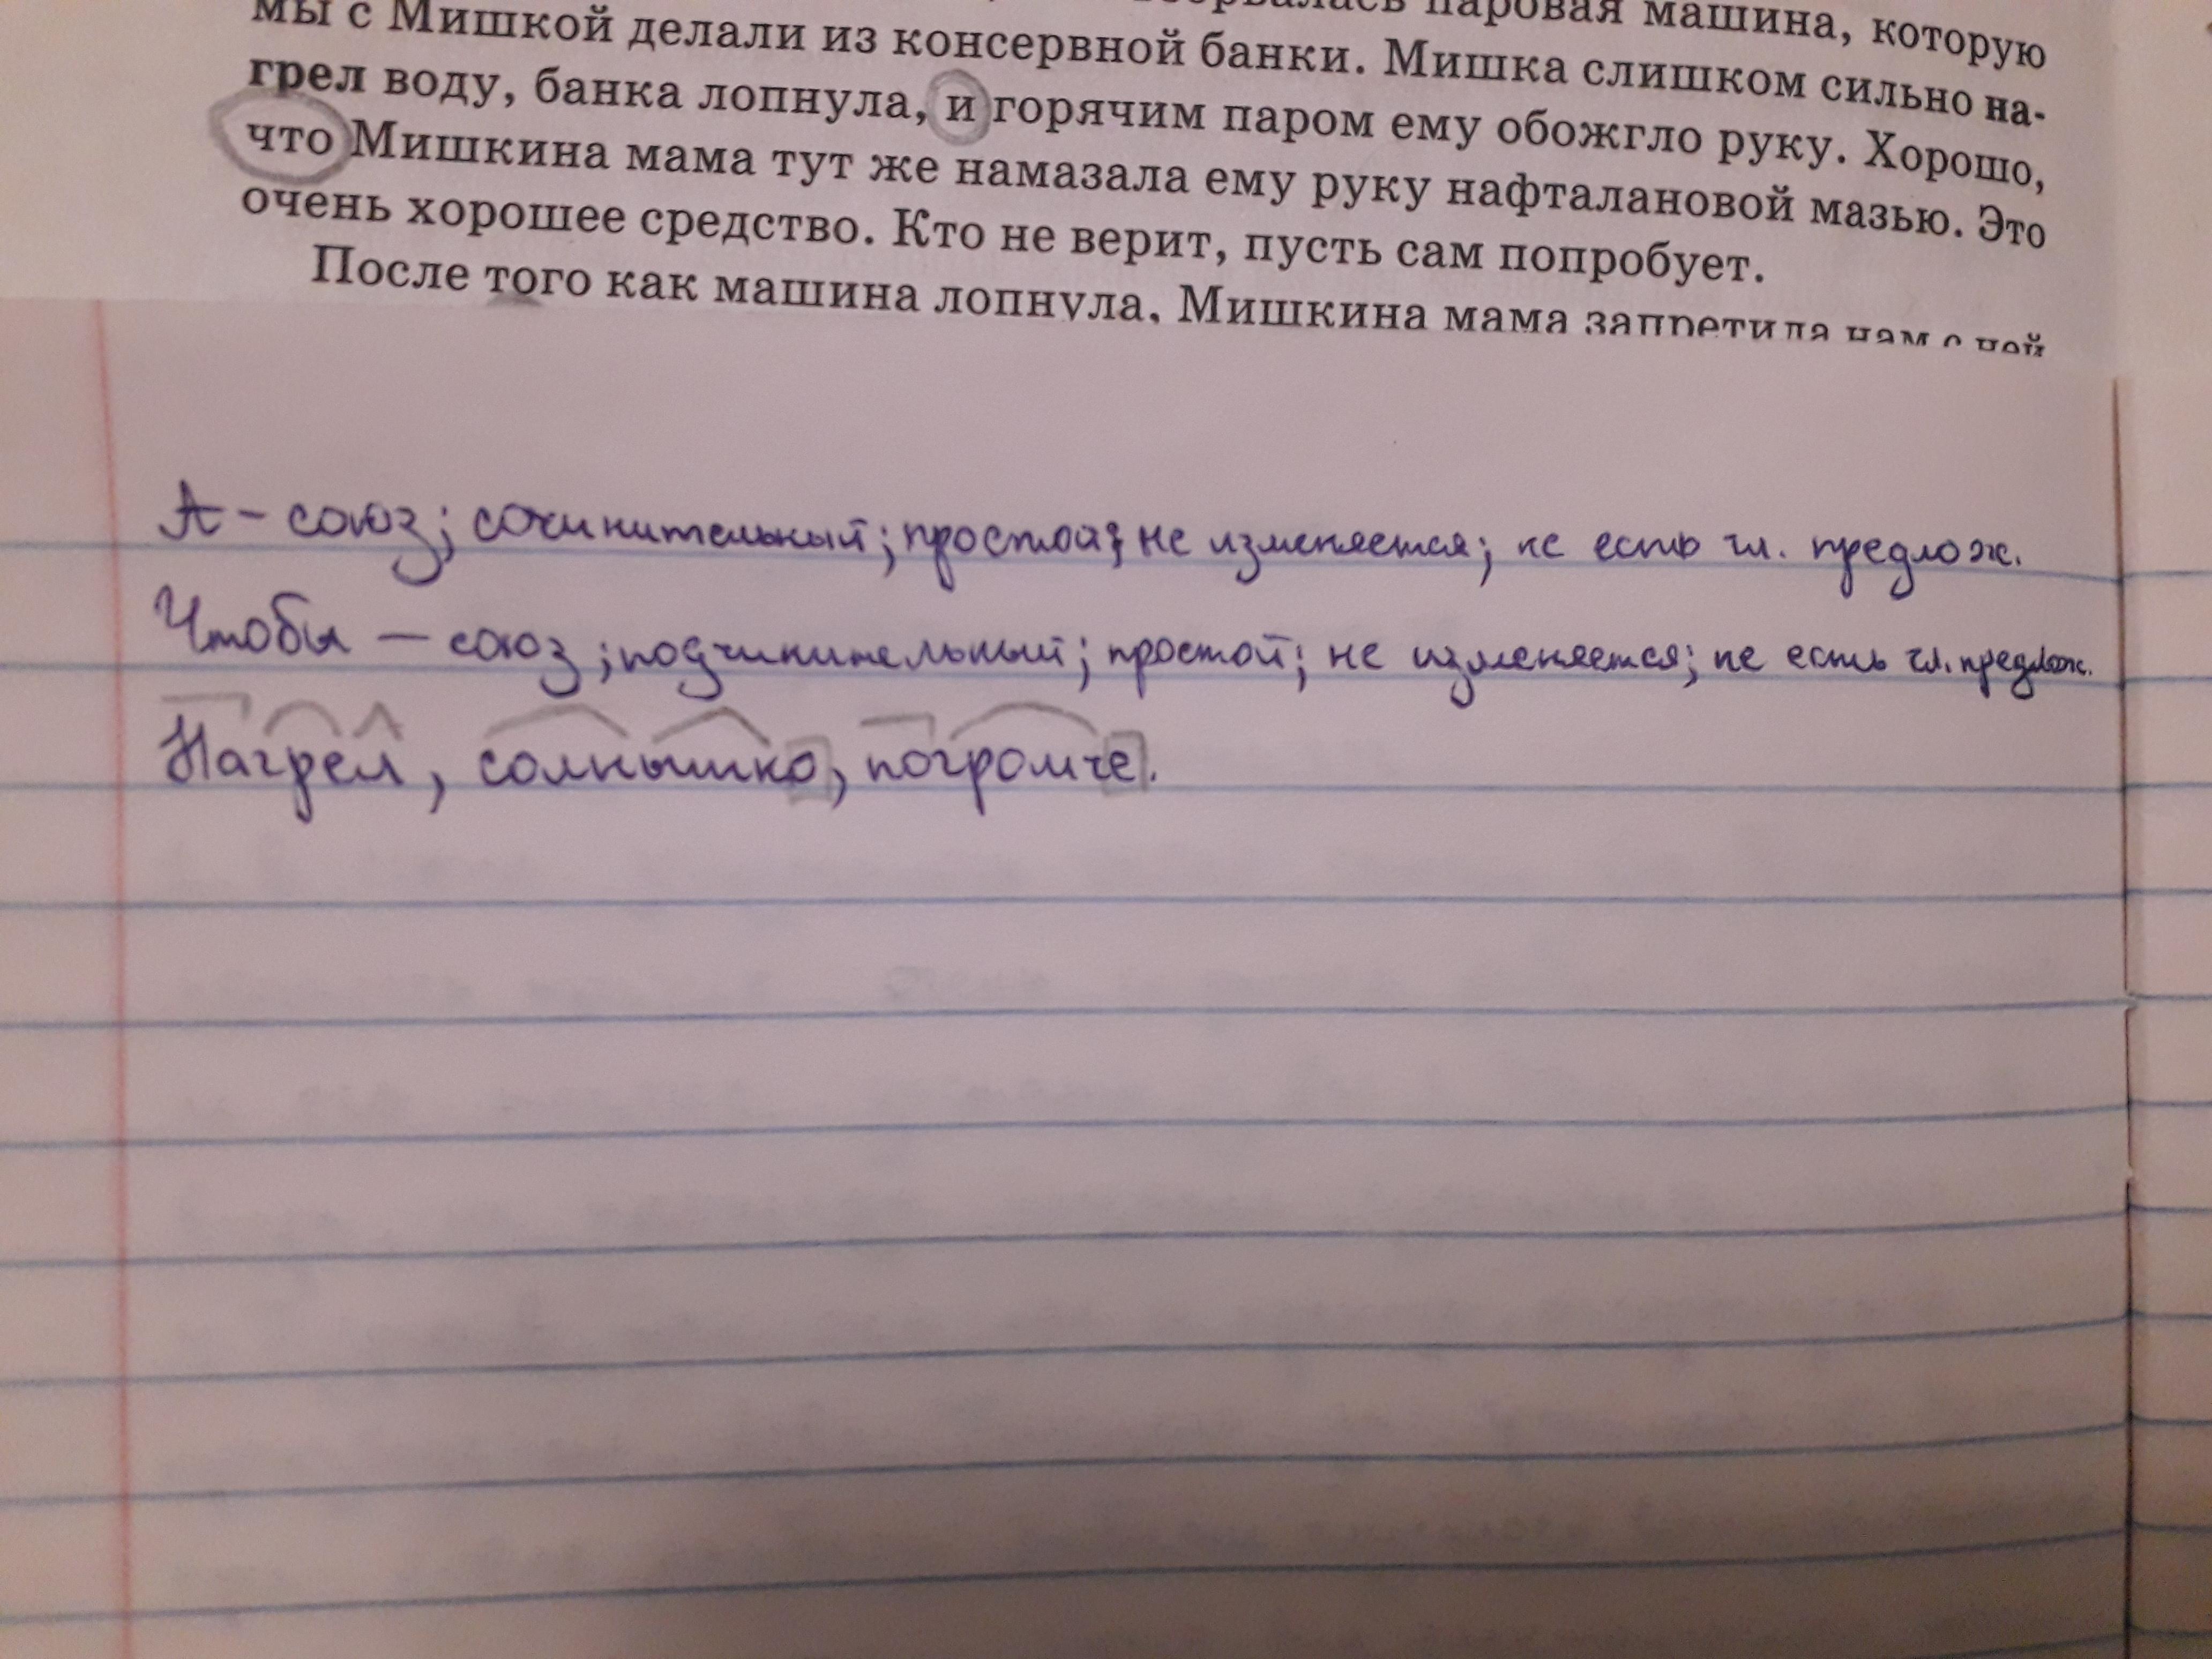 паровая машина, которую
мы с Мишкой делали из консервной банки. Мишка слишком сильно на-
грел воду, банка лопнула, и горячим паром ему обожгло руку. Хорошо,
что Мишкина мама тут же намазала ему руку нафталановой мазью. Это
очень хорошее средство. Кто не верит, пусть сам попробует.
После того как машина лопнула, Мишкина мама запретила нам с ней
А – союз; сочинительный; простой; не изменяется; не есть чл. предлож.
Чтобы – союз; подчинительный; простой; не изменяется; не есть чл. предлож.
Нагрел, солнышко, погромче.